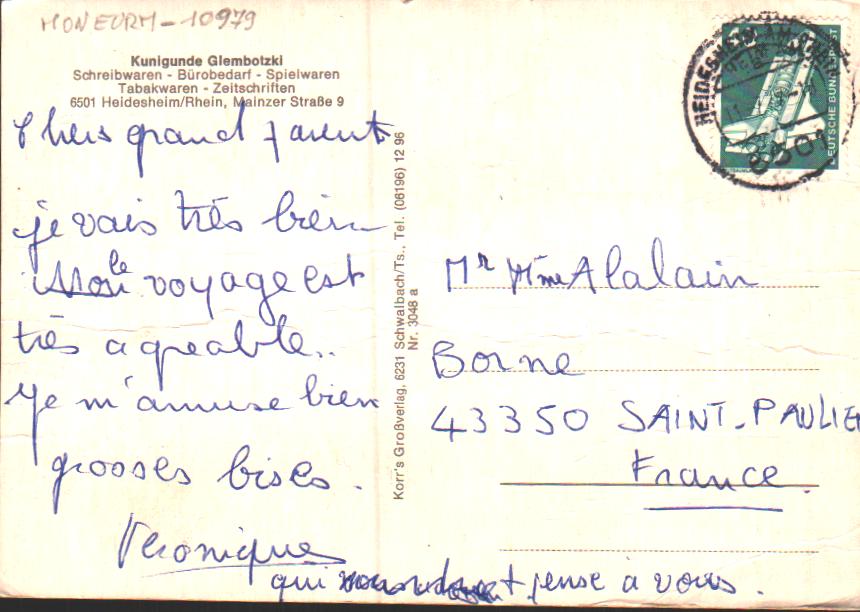 MONEURM - 10979
Kunigunde Glembotzki
Schreibwaren - Bürobedarf - Spielwaren
Tabakwaren - Zeitschriften
6501 Heidesheim/Rhein, Mainzer Straße 9
Chers grand parents
je vais très bien
Mon le voyage est
très agreable..
je m'amuse bien
grosses bises.
Veronique
qui pense à vous.
Korr's Großverlag, 6231 Schwalbach/Ts., Tel. (06196) 12 96
Nr. 3048 a
HEIDESHEIM AM RHEIN
6501
DEUTSCHE BUNDESPOST
Mr Mme Alalain
Borne
43350 SAINT-PAULIEN
France